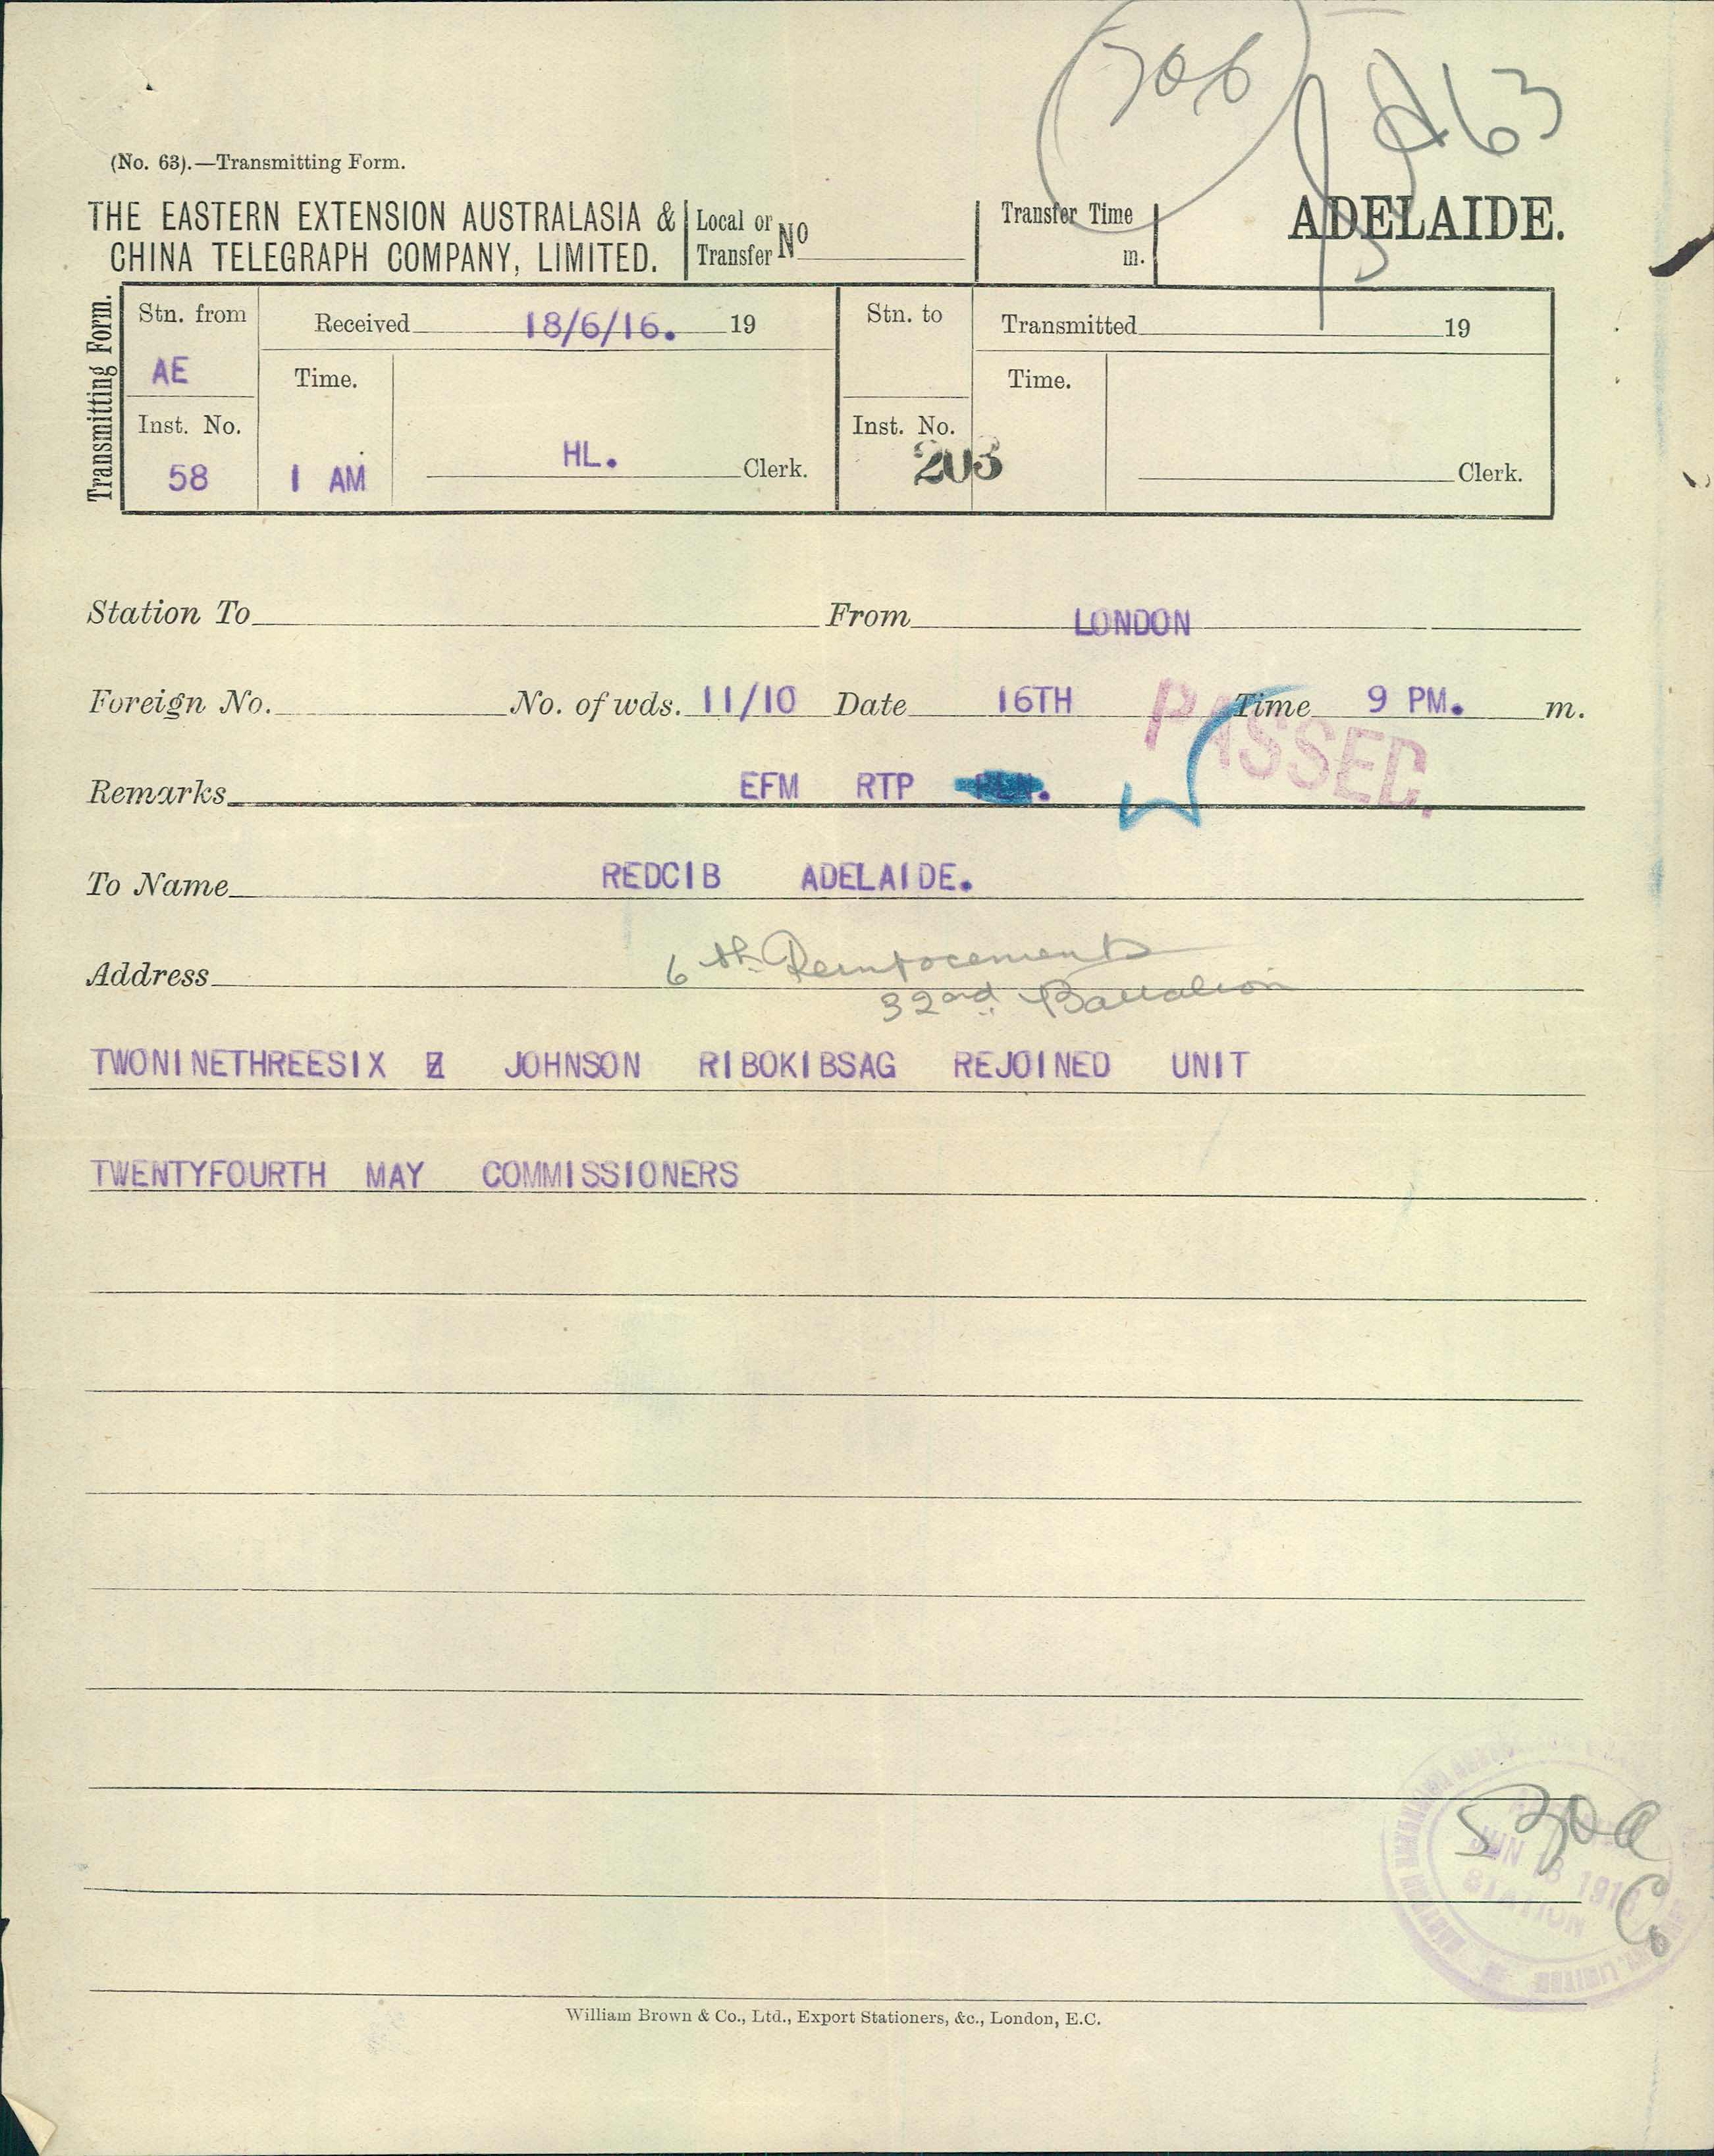 (No. 63).—Transmitting Form.
THE EASTERN EXTENSION AUSTRALASIA &
CHINA TELEGRAPH COMPANY, LIMITED.
Local or
Transfer No
Transfer Time
m.
ADELAIDE.
Transmitting Form.
Stn. from
AE
Received 18/6/16. 19
Stn. to
Transmitted 19
Time.
Time.
Inst. No.
58
1 AM
HL. Clerk.
Inst. No.
203
Clerk.
Station To From LONDON
Foreign No. No. of wds. 11/10 Date 16TH Time 9 PM. m.
PASSED.
Remarks EFM RTP
To Name REDCIB ADELAIDE.
Address 6th Reinfocements
32nd Battalion
TWONINETHREESIX JOHNSON RIBOKIBSAG REJOINED UNIT
TWENTYFOURTH MAY COMMISSIONERS
530a
JUN 18 1916
STATION
William Brown & Co., Ltd., Export Stationers, &c., London, E.C.